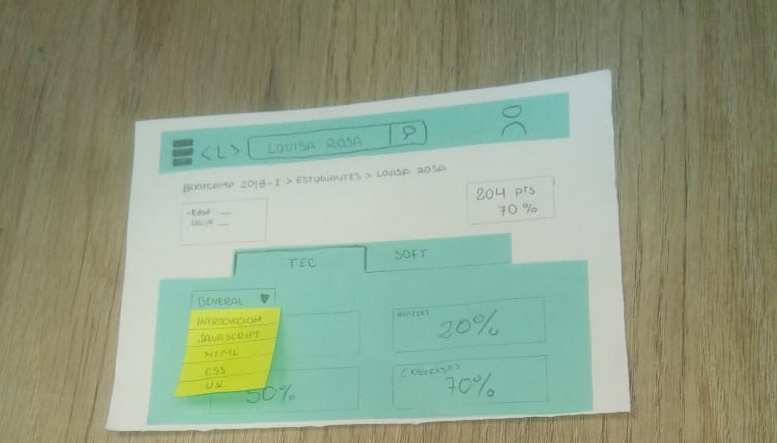 <L> LOUISA ROSA
BOOTCAMP 2018-I > ESTUDIANTES > LOUISA ROSA
204 pts
70%
-Edad __
TEC
SOFT
GENERAL
INTRODUCCION
JAVASCRIPT
HTML
CSS
UX
QUIZZES
20%
50%
EXERCISES
70%